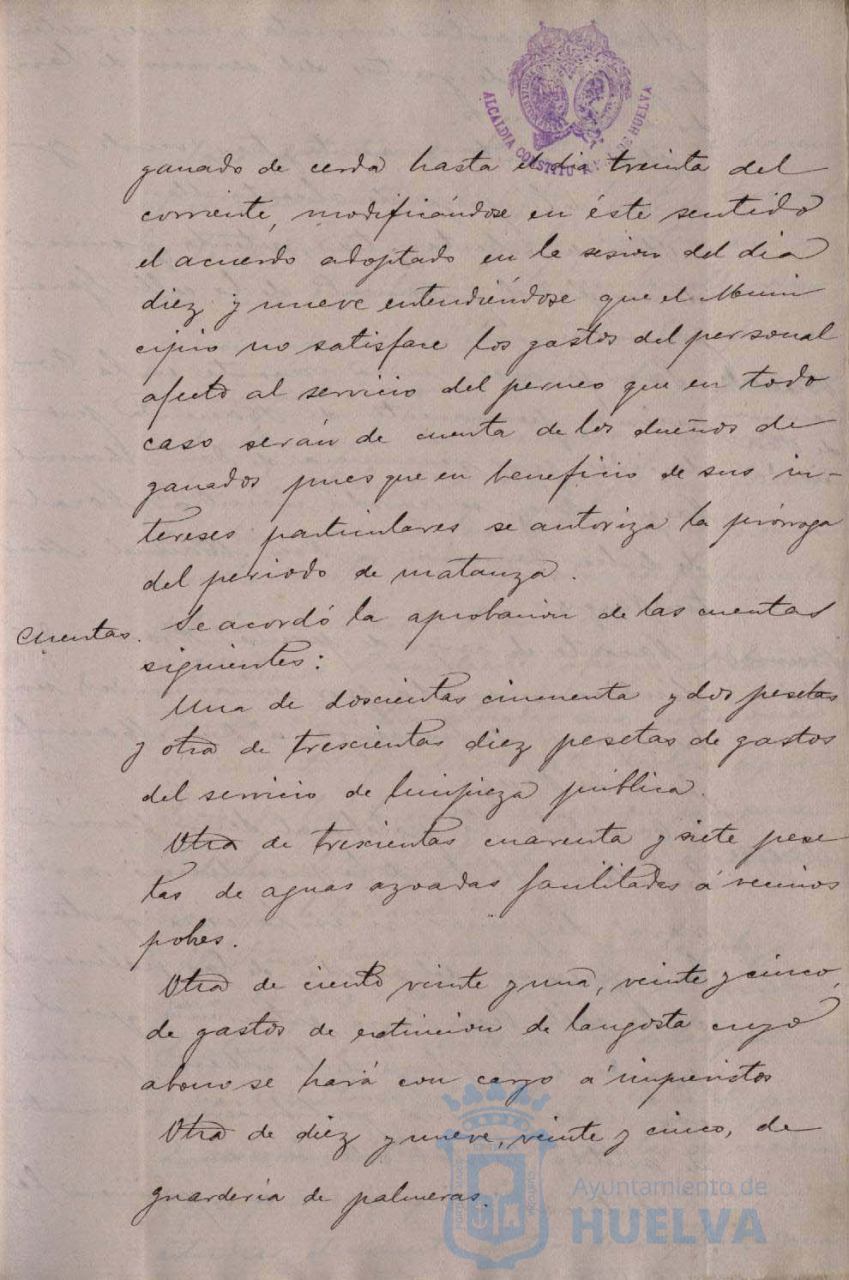 ALCALDIA CONSTITU HUELVA
ganado de cerda hasta el dia treinta del
corriente, modificándose en éste sentido
el acuerdo adoptado en la sesion del dia
diez y nueve entendiéndose que el Muni
cipio no satisface los gastos del personal
afecto al servicio del perneo que en todo
caso serán de cuenta de los dueños de
ganados pues que en beneficio de sus in-
tereses particulares se autoriza la prórroga
del periodo de matanza.
Cuentas. Se acordó la aprobacion de las cuentas
siguientes:
Una de doscientas cincuenta y dos pesetas
y otra de trescientas diez pesetas de gastos
del servicio de limpieza pública.
Otra de trescientas cuarenta y siete pese
tas de aguas azoadas facilitadas á vecinos
pobres.
Otra de ciento veinte y una, veinte y cinco,
de gastos de extincion de langosta cuyo
abono se hará con cargo á imprevistos
Otra de diez y nueve, veinte y cinco, de
guardería de palmeras.
Ayuntamiento de
HUELVA